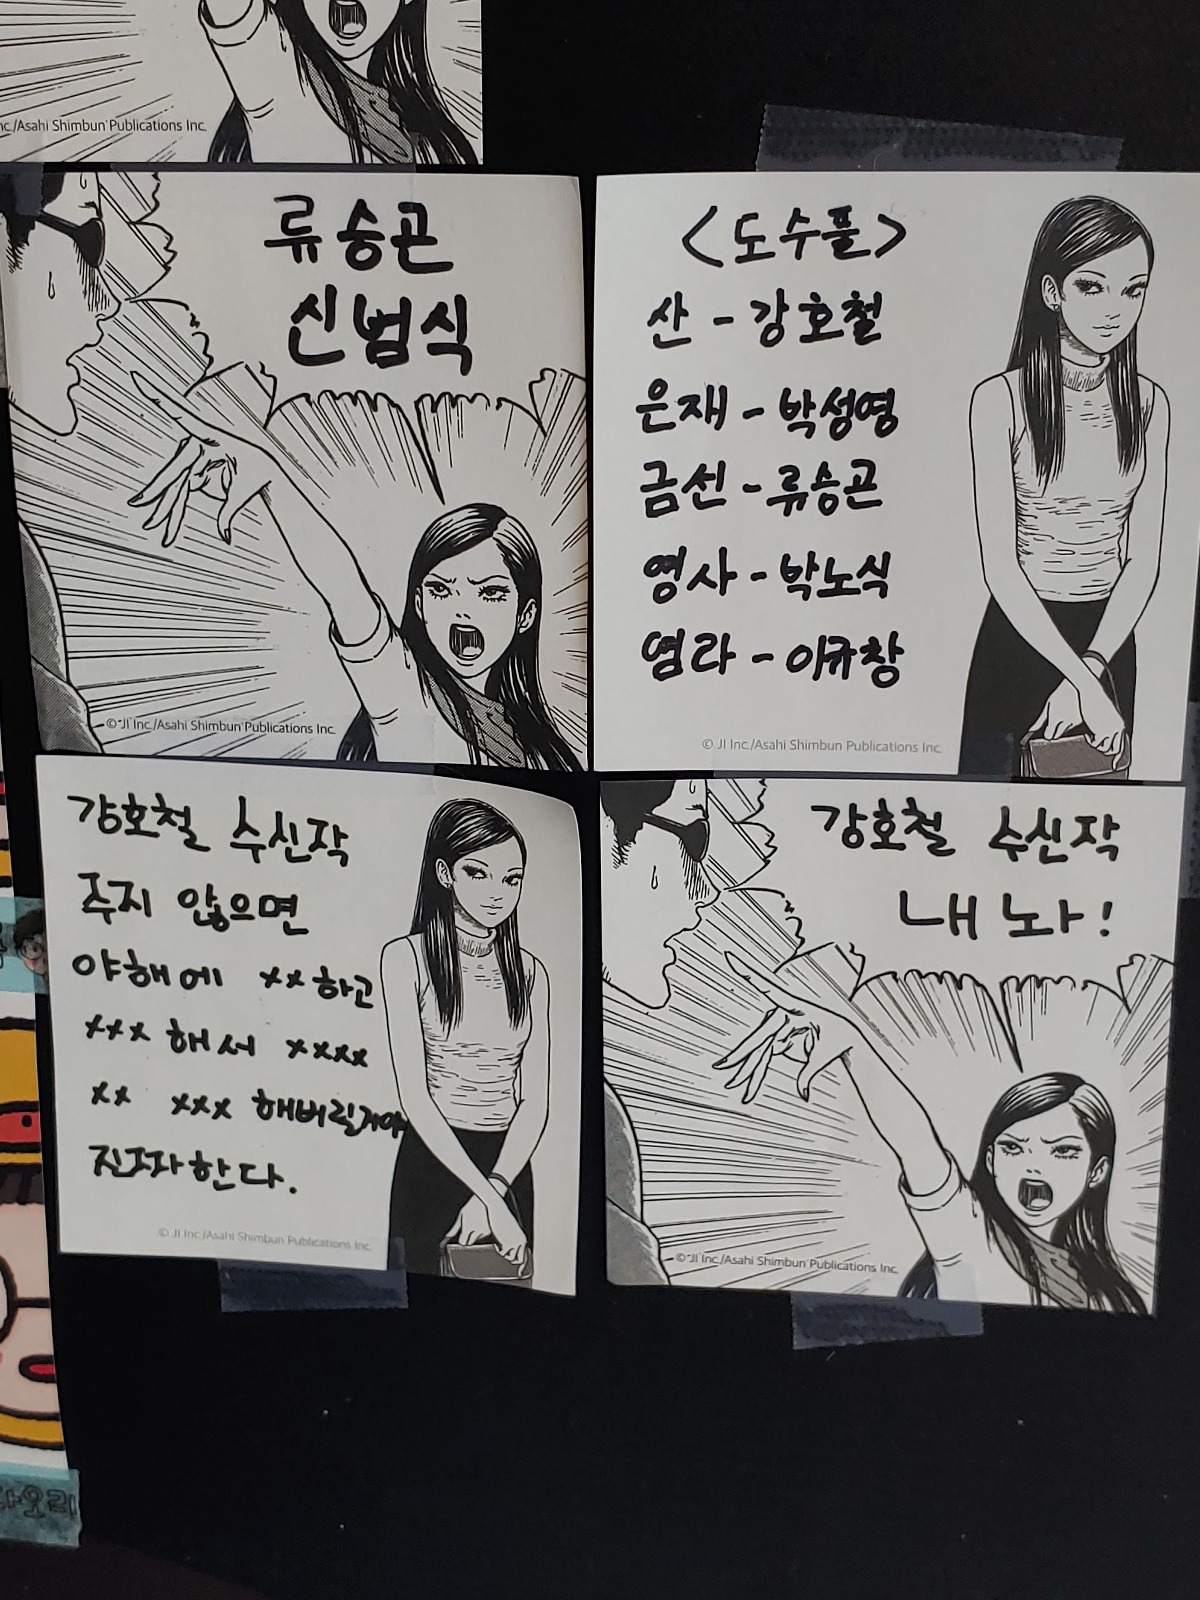 nc./Asahi Shimbun Publications Inc.
류승곤
신범식
© JI Inc./Asahi Shimbun Publications Inc.
<도수풀>
산 - 강호철
은재 - 박성영
금선 - 류승곤
영사 - 박노식
염라 - 이규창
© JI Inc./Asahi Shimbun Publications Inc.
강호철 수신작
주지 않으면
야해에 xx하고
xxx 해서 xxxx
xx xxx 해버릴거야
진짜한다.
© JI Inc./Asahi Shimbun Publications Inc.
강호철 수신작
내 놔!
© JI Inc./Asahi Shimbun Publications Inc.
오리